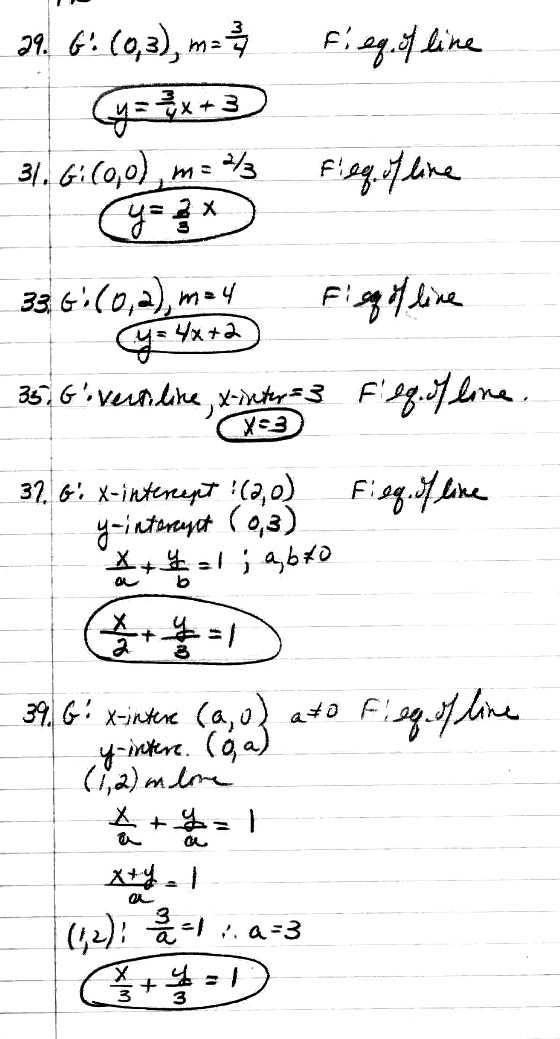 29. G: (0,3), m = 3/4 F: eq. of line
y = 3/4 x + 3
31. G: (0,0), m = 2/3 F: eq. of line
y = 2/3 x
33. G: (0,2), m = 4 F: eq of line
y = 4x + 2
35. G: vert. line, x-inter = 3 F: eq. of line.
x = 3
37. G: x-intercept : (2,0) F: eq. of line
y-intercept (0,3)
x/a + y/b = 1 ; a,b ≠ 0
x/2 + y/3 = 1
39. G: x-interc (a,0) a ≠ 0 F: eq. of line
y-interc. (0,a)
(1,2) on line
x/a + y/a = 1
x+y/a = 1
(1,2): 3/a = 1 ∴ a = 3
x/3 + y/3 = 1